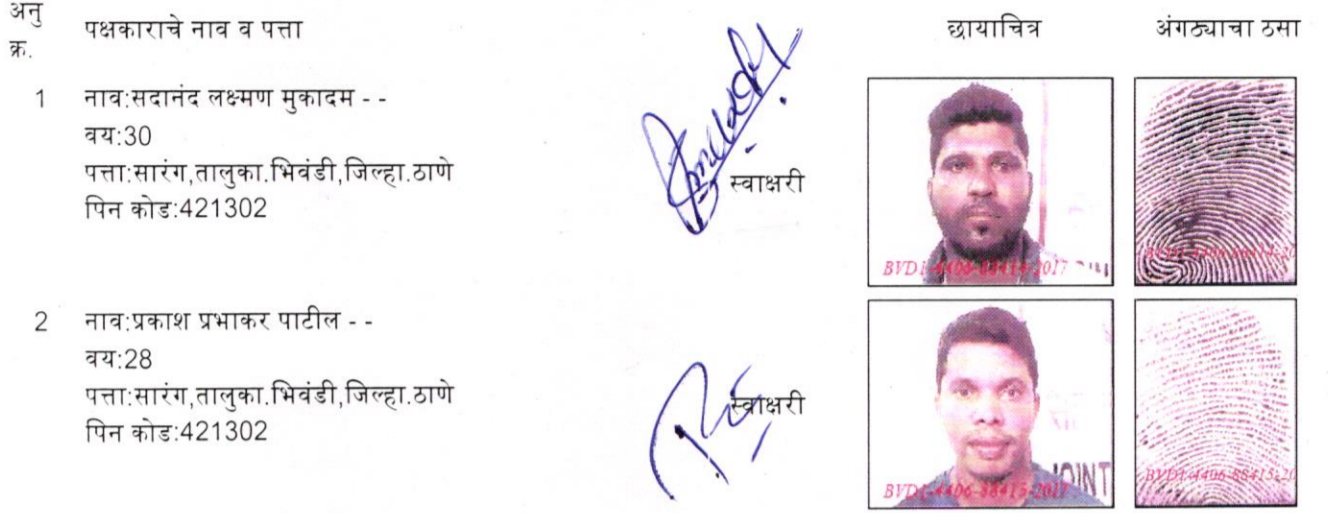 अनु क्र. पक्षकाराचे नाव व पत्ता छायाचित्र अंगठ्याचा ठसा
1 नाव:सदानंद लक्ष्मण मुकादम - -
वय:30
पत्ता:सारंग,तालुका.भिवंडी,जिल्हा.ठाणे
स्वाक्षरी
पिन कोड:421302
BVD1-4406-88414-2017
BVD1-4406-88414-20
2 नाव:प्रकाश प्रभाकर पाटील - -
वय:28
पत्ता:सारंग,तालुका.भिवंडी,जिल्हा.ठाणे
स्वाक्षरी
पिन कोड:421302
JOINT
BVD1-4406-88415-2017
BVD1-4406-88415-20